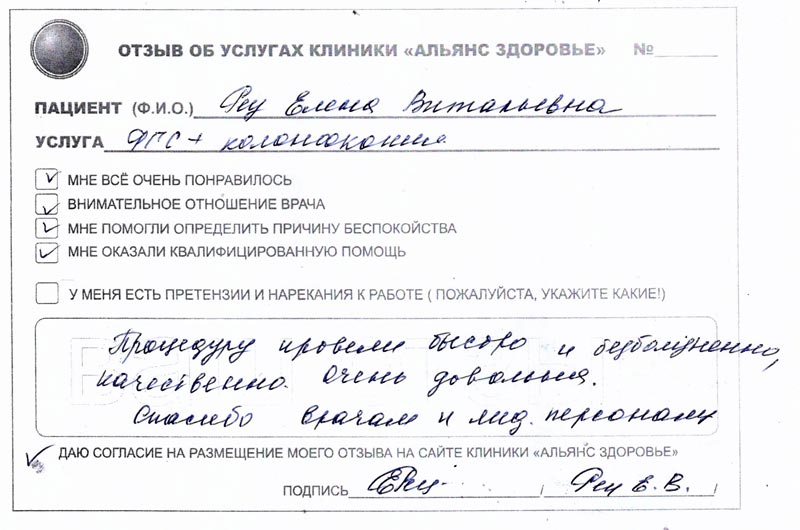 ОТЗЫВ ОБ УСЛУГАХ КЛИНИКИ «АЛЬЯНС ЗДОРОВЬЕ» №
ПАЦИЕНТ (Ф.И.О.) Реу Елена Витальевна
УСЛУГА ФГС + колоноскопия
МНЕ ВСЁ ОЧЕНЬ ПОНРАВИЛОСЬ
ВНИМАТЕЛЬНОЕ ОТНОШЕНИЕ ВРАЧА
МНЕ ПОМОГЛИ ОПРЕДЕЛИТЬ ПРИЧИНУ БЕСПОКОЙСТВА
МНЕ ОКАЗАЛИ КВАЛИФИЦИРОВАННУЮ ПОМОЩЬ
У МЕНЯ ЕСТЬ ПРЕТЕНЗИИ И НАРЕКАНИЯ К РАБОТЕ ( ПОЖАЛУЙСТА, УКАЖИТЕ КАКИЕ!)
Процедуру провели быстро и безболезненно,
качественно. Очень довольна.
Спасибо врачам и мед. персоналу
ДАЮ СОГЛАСИЕ НА РАЗМЕЩЕНИЕ МОЕГО ОТЗЫВА НА САЙТЕ КЛИНИКИ «АЛЬЯНС ЗДОРОВЬЕ»
ПОДПИСЬ / Реу Е. В. /